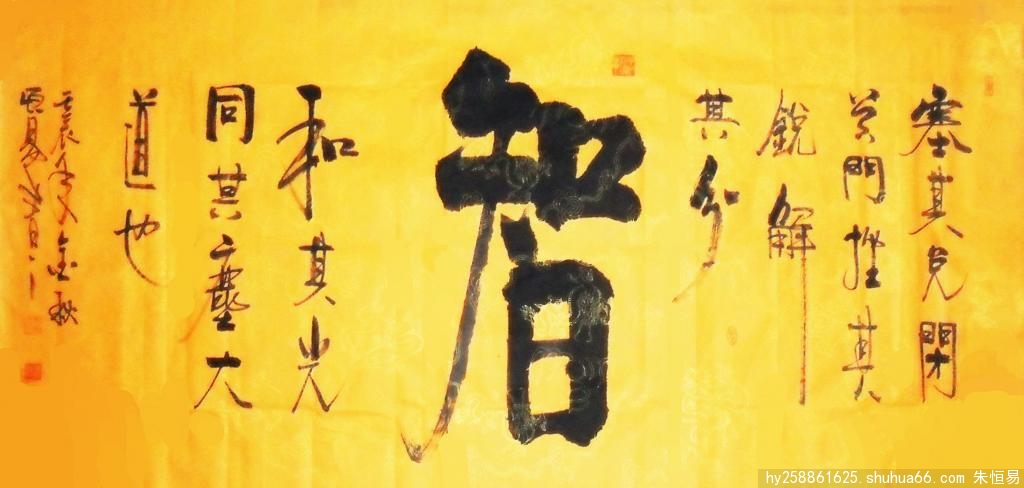 塞其兑閉
其門挫其
銳解
其分
智
和其光
同其塵大
道也
壬辰 金秋
hy258861625.shuhua66.com 朱恒易